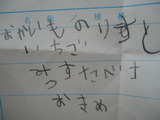 おかいものりすと
いちご
みつすたべはす
おきめ